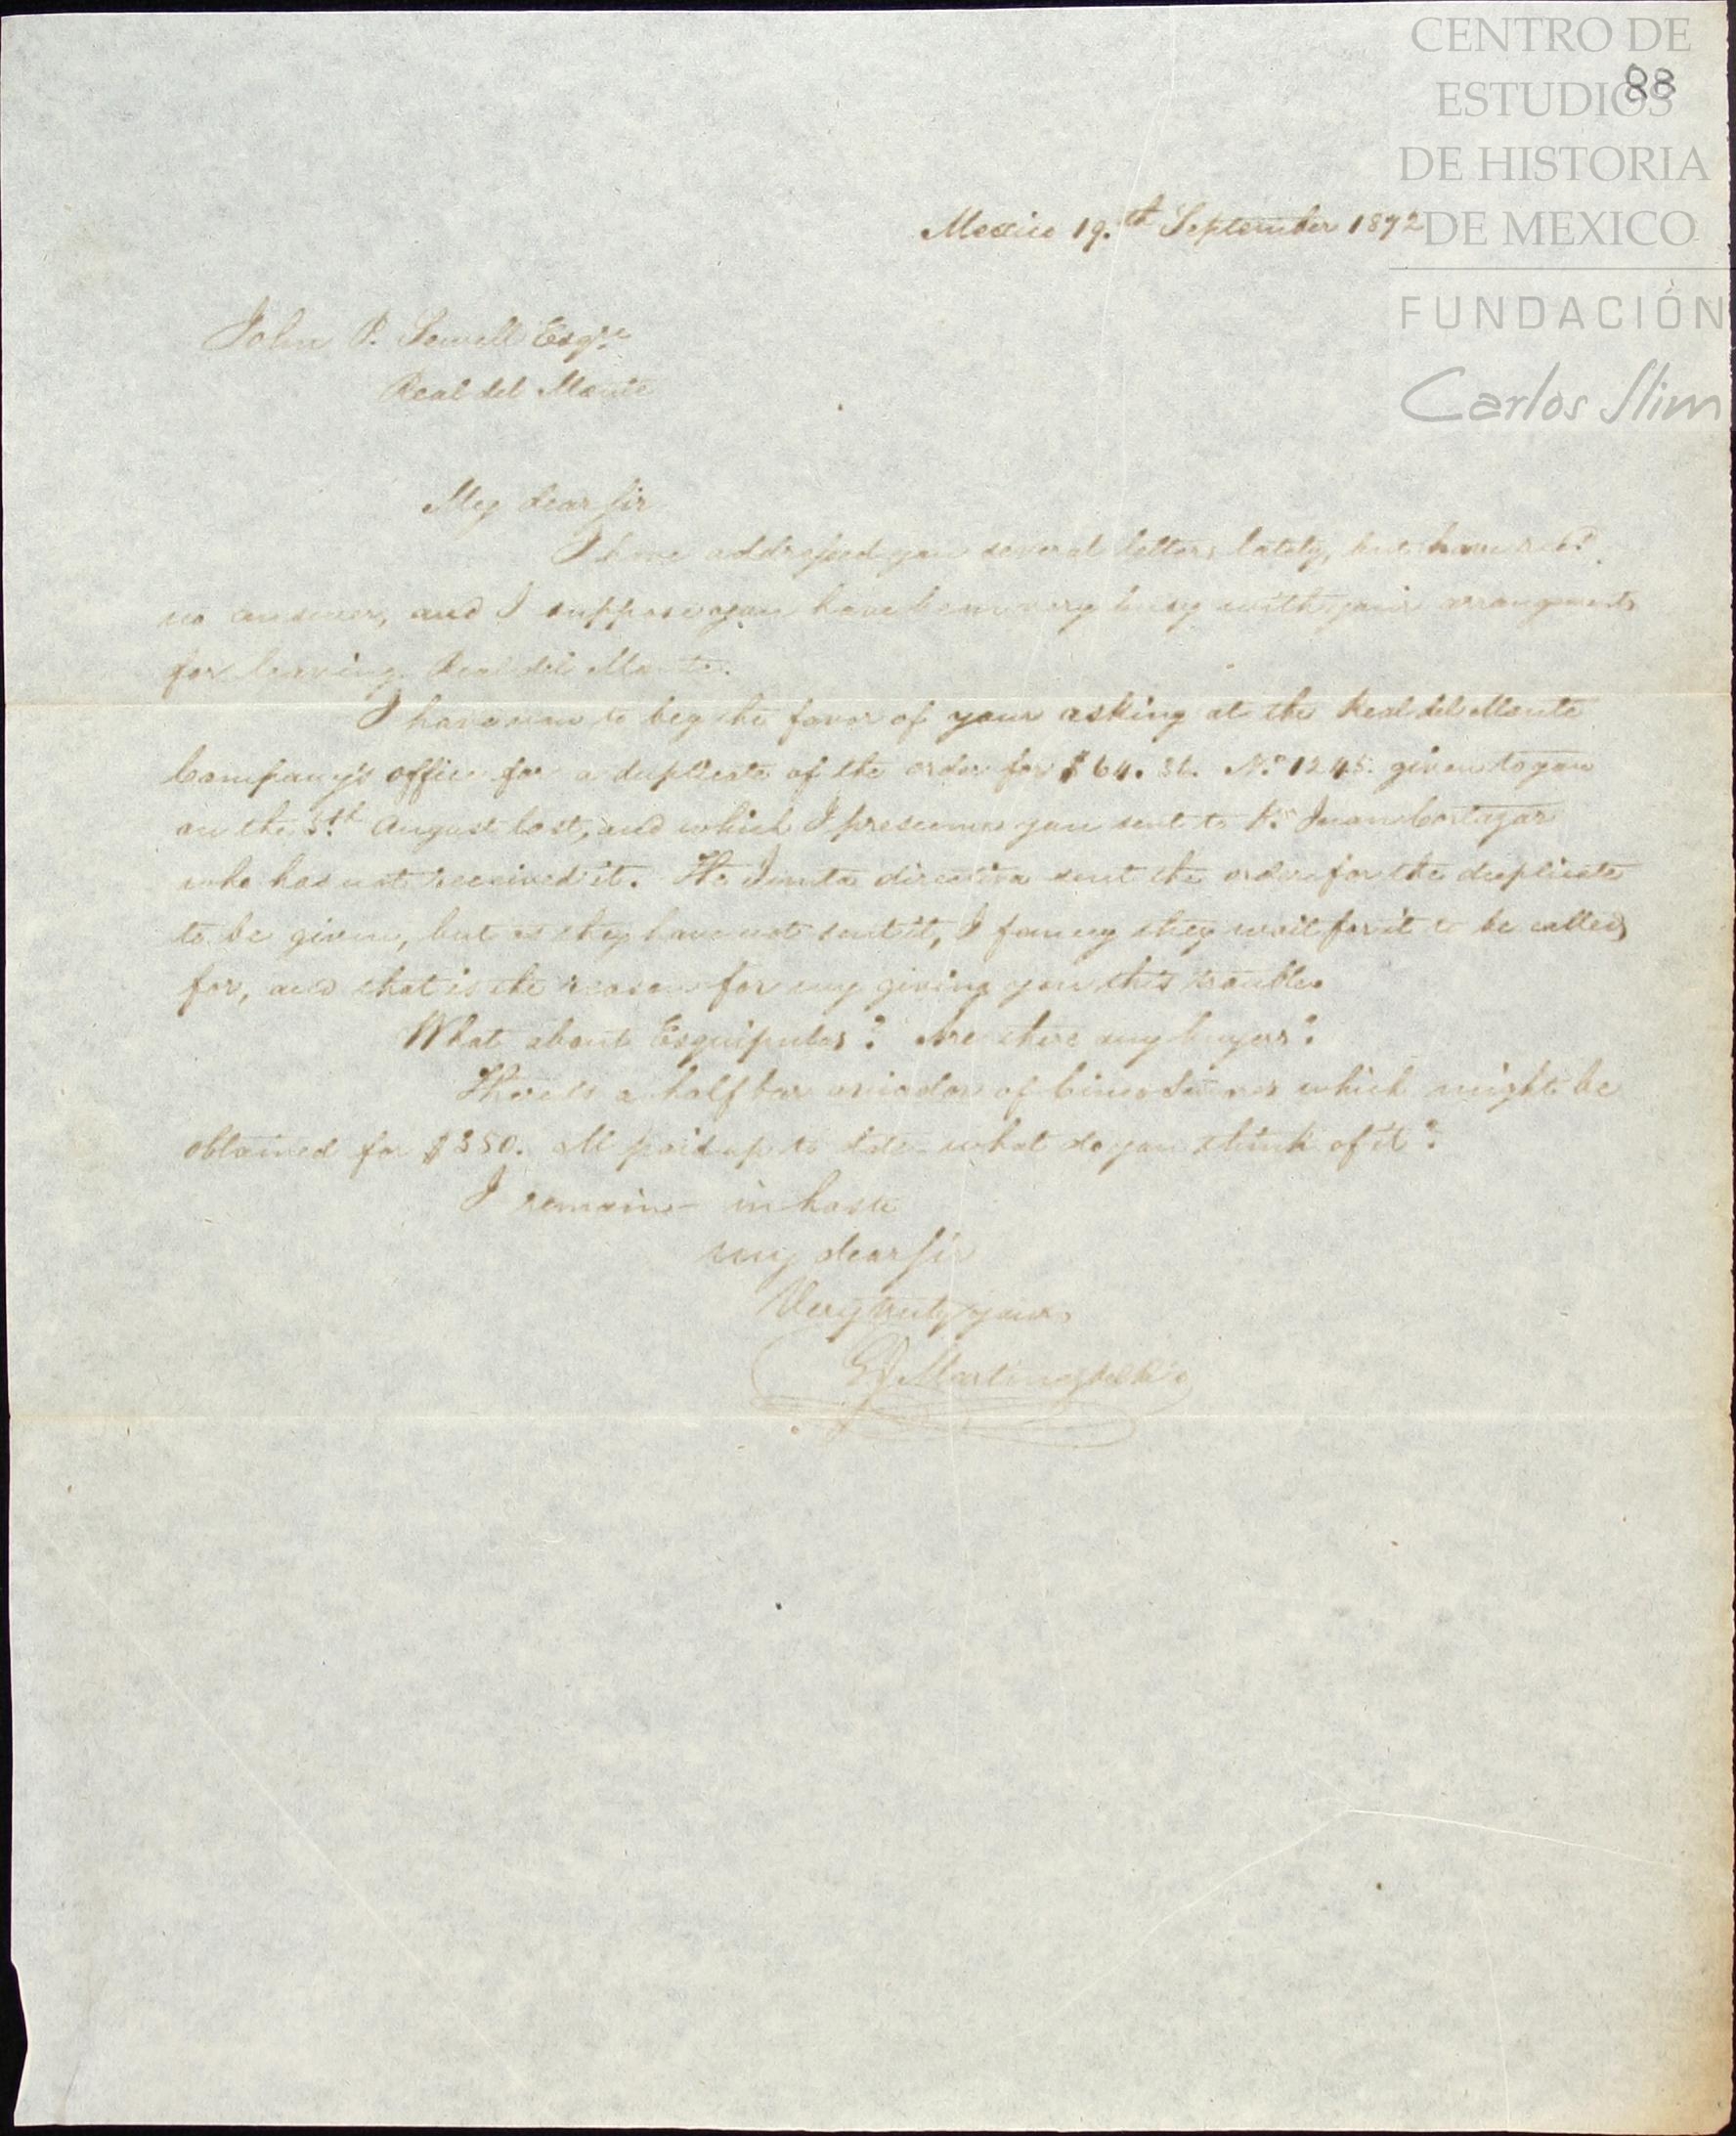 CENTRO DE
ESTUDIOS
DE HISTORIA
DE MEXICO
FUNDACIÓN
Carlos Slim
88
Mexico 19.th September 1872
John P. Sowell Esqre
Real del Monte
My dear Sir
I have addressed you several letters lately, but have recd
no answer, and I suppose you have been very busy with your arrangements
for leaving Real del Monte.
I have now to beg the favor of your asking at the Real del Monte
Company's office for a duplicate of the order for $64.31. No 1245. given to you
on the 5th August last, and which I presume you sent to Dn Juan Cortazar
who has not received it. The Junta directiva sent the order for the duplicate
to be given, but as they have not sent it, I fancy they wait for it to be called
for, and that is the reason for my giving you this trouble.
What about Esquipulas? Are there any buyers?
There is a half bar aviador of which might be
obtained for $350. all paid up to date - what do you think of it?
I remain - in haste
my dear Sir
Very truly yours
E J Martinez del Rio